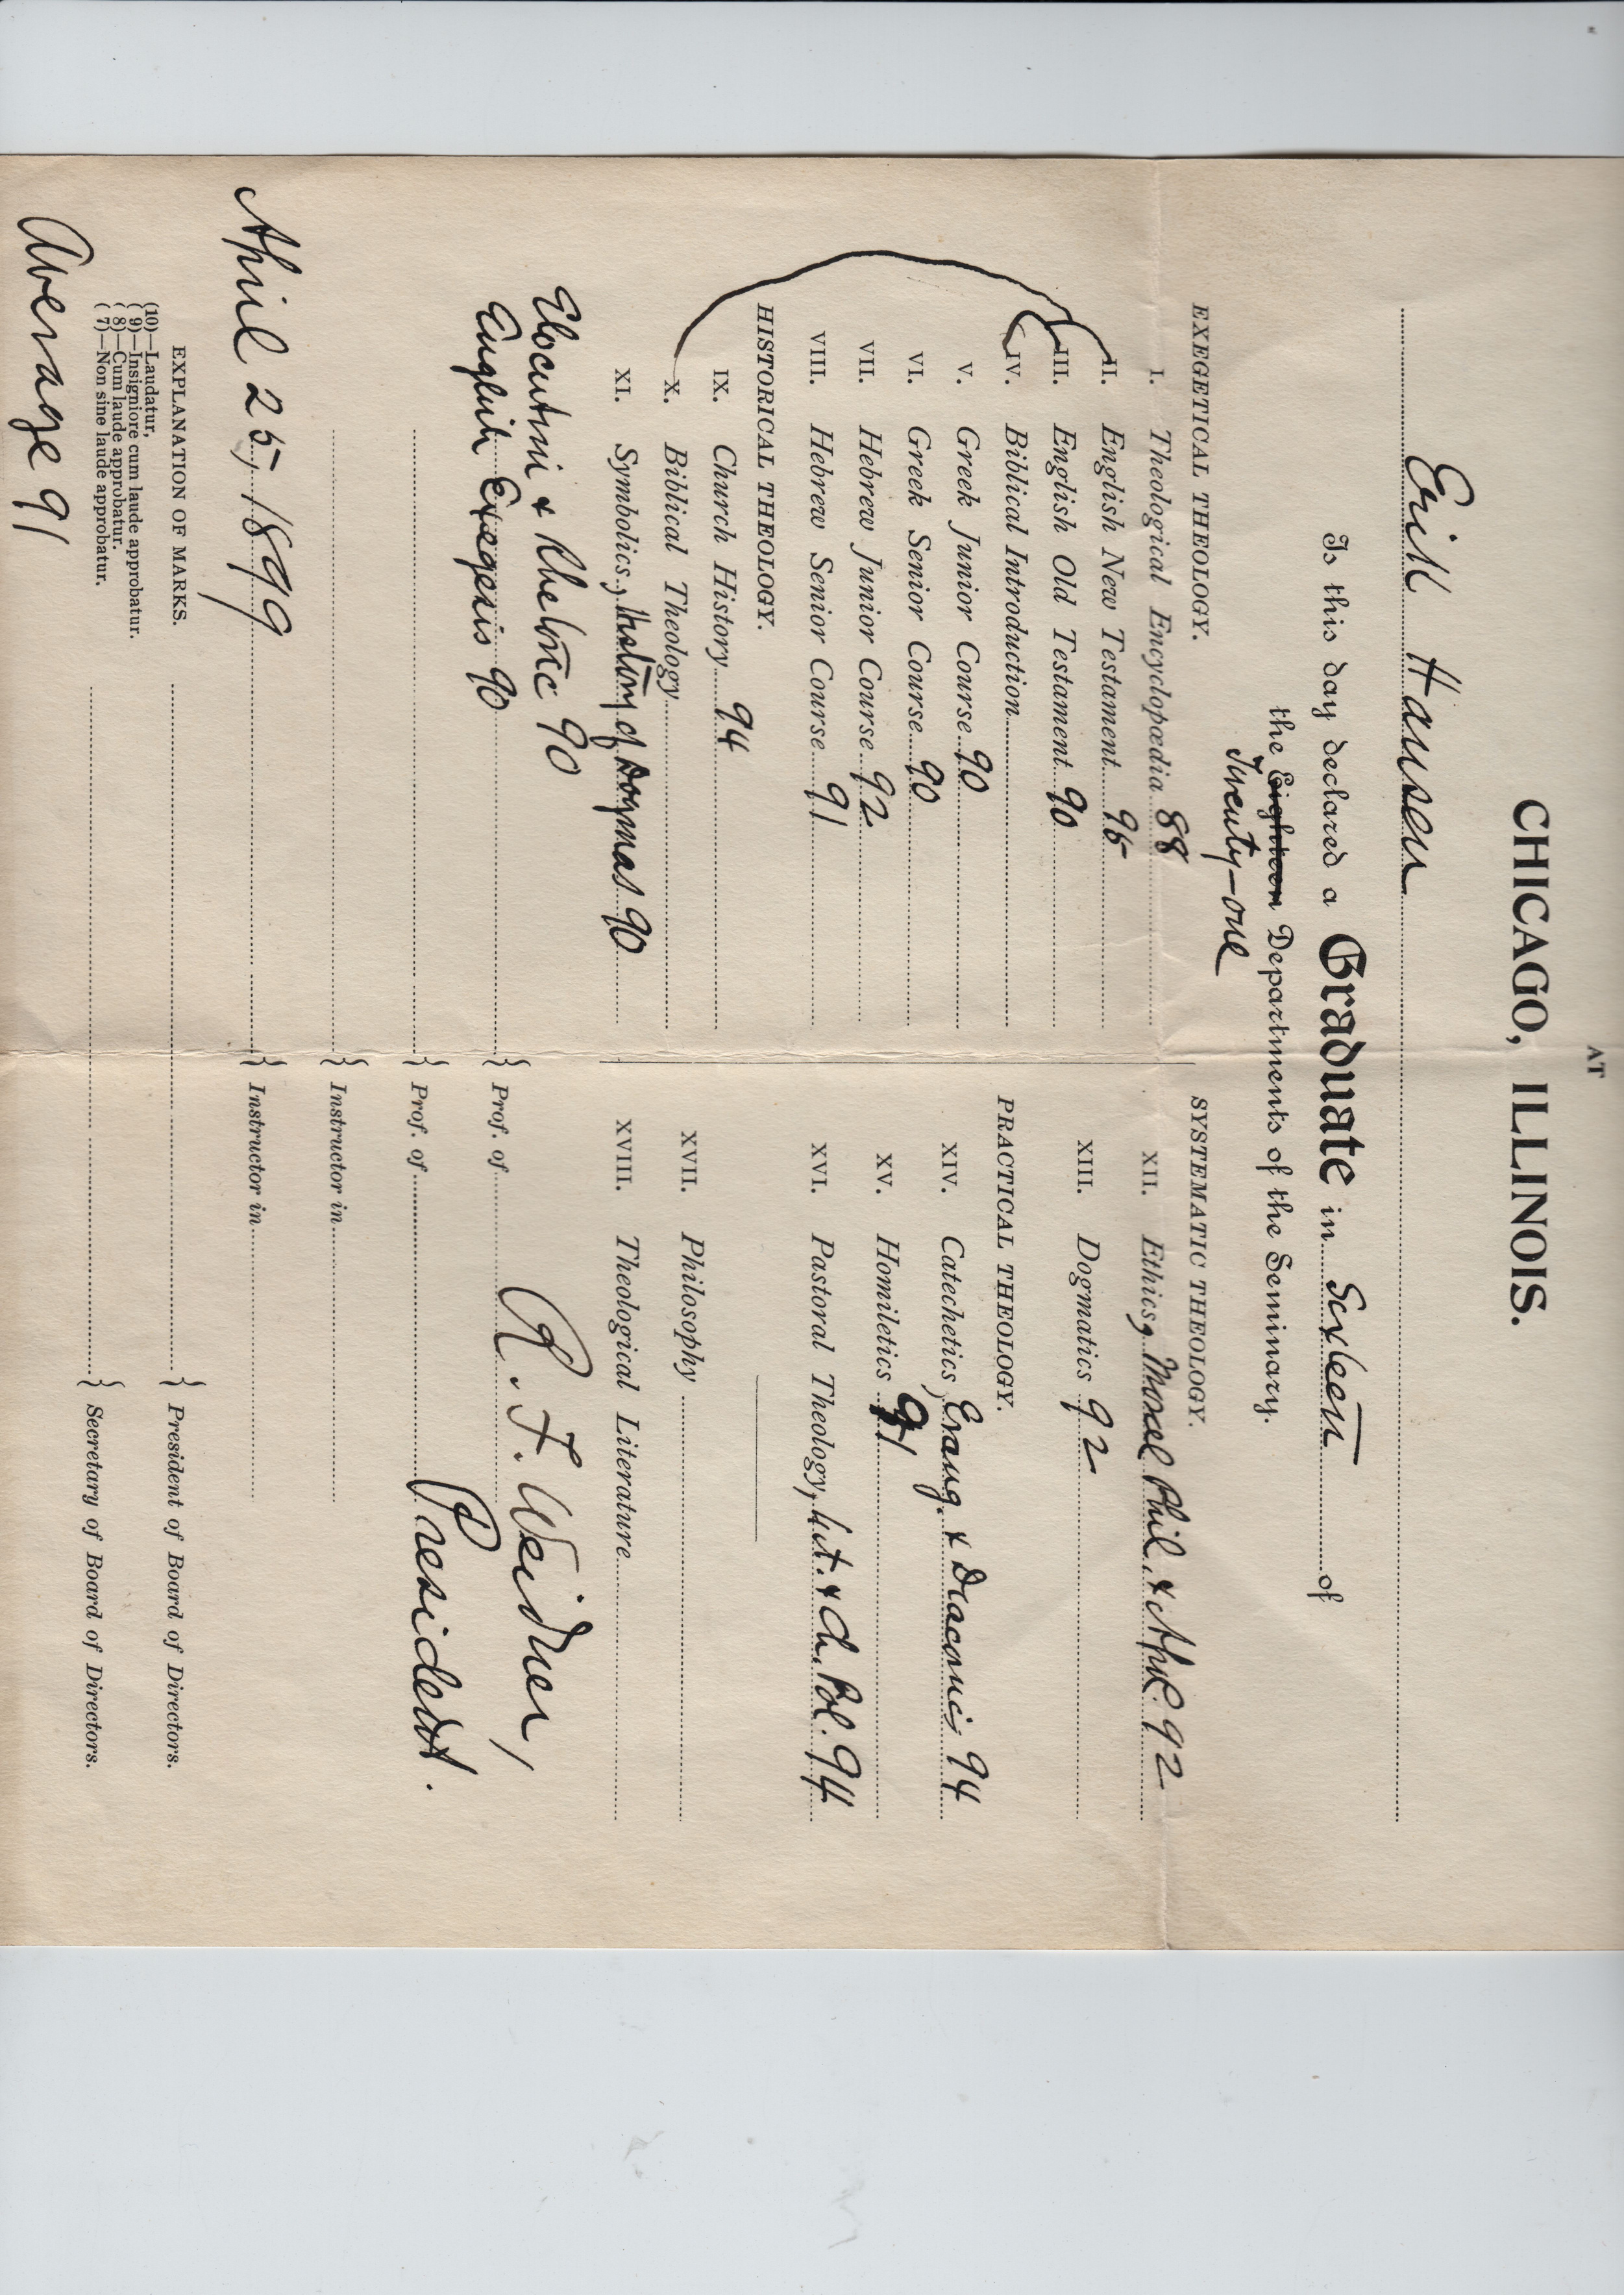 AT
CHICAGO, ILLINOIS.
Erik Hansen
Is this day declared a Graduate in Sixteen of
the Eighteen Departments of the Seminary.
Twenty-one
EXEGETICAL THEOLOGY.
I. Theological Encyclopædia 88
II. English New Testament 95
III. English Old Testament 90
IV. Biblical Introduction
V. Greek Junior Course 90
VI. Greek Senior Course 90
VII. Hebrew Junior Course 92
VIII. Hebrew Senior Course 91
HISTORICAL THEOLOGY.
IX. Church History 94
X. Biblical Theology
XI. Symbolics, History of Dogmas 90
Elocution & Rhetoric 90
English Exegesis 90
SYSTEMATIC THEOLOGY.
XII. Ethics, Moral Phil. & Apol. 92
XIII. Dogmatics 92
PRACTICAL THEOLOGY.
XIV. Catechetics, Evang. & Diaconics 94
XV. Homiletics 91
XVI. Pastoral Theology, Lit. & Ch. Pol. 94
XVII. Philosophy
XVIII. Theological Literature
} Prof. of R. F. Weidner,
} Prof. of President.
} Instructor in
April 25, 1899 } Instructor in
EXPLANATION OF MARKS.
(10)—Laudatur,
( 9)—Insigniore cum laude approbatur.
( 8)—Cum laude approbatur.
( 7)—Non sine laude approbatur.
} President of Board of Directors.
} Secretary of Board of Directors.
Average 91